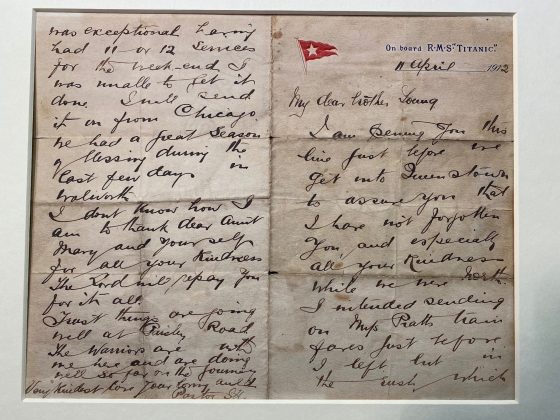 On board R.M.S. "TITANIC."
11 April 1912
My dear brother Young
I am penning you this
line just before we
get into Queenstown
to assure you that
I have not forgotten
you, and especially
all your kindness
while we were North.
I intended sending
on Miss Pratts train
fares just before
I left but in
the rush, which
was exceptional having
had 11 or 12 services
for the week-end I
was unable to get it
done. I will send
it on from Chicago
We had a great season
of blessing during the
last few days in
Walworth
I dont know how I
am to thank dear Aunt
Mary and yourself
for all your kindness
The Lord will repay you
for it all
Trust things are going
well at Paisley Road
The Warriors are with
me here and are doing
well so far on the journey
Very kindest love Your loving auld
Pastor